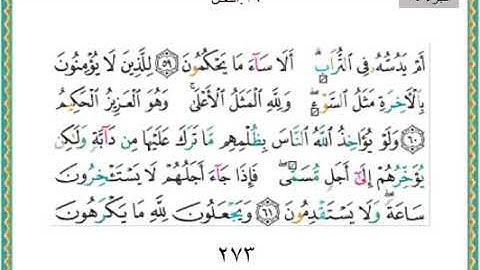 أَمْ يَدُسُّهُۥ فِى ٱلتُّرَابِ ۗ أَلَا سَآءَ مَا يَحْكُمُونَ ۝٥٩ لِلَّذِينَ لَا يُؤْمِنُونَ
بِٱلْـَٔاخِرَةِ مَثَلُ ٱلسَّوْءِ ۖ وَلِلَّهِ ٱلْمَثَلُ ٱلْأَعْلَىٰ ۚ وَهُوَ ٱلْعَزِيزُ ٱلْحَكِيمُ
۝٦٠ وَلَوْ يُؤَاخِذُ ٱللَّهُ ٱلنَّاسَ بِظُلْمِهِم مَّا تَرَكَ عَلَيْهَا مِن دَآبَّةٍ وَلَٰكِن
يُؤَخِّرُهُمْ إِلَىٰٓ أَجَلٍ مُّسَمًّى ۖ فَإِذَا جَآءَ أَجَلُهُمْ لَا يَسْتَـْٔخِرُونَ
سَاعَةً ۖ وَلَا يَسْتَقْدِمُونَ ۝٦١ وَيَجْعَلُونَ لِلَّهِ مَا يَكْرَهُونَ
٢٧٣